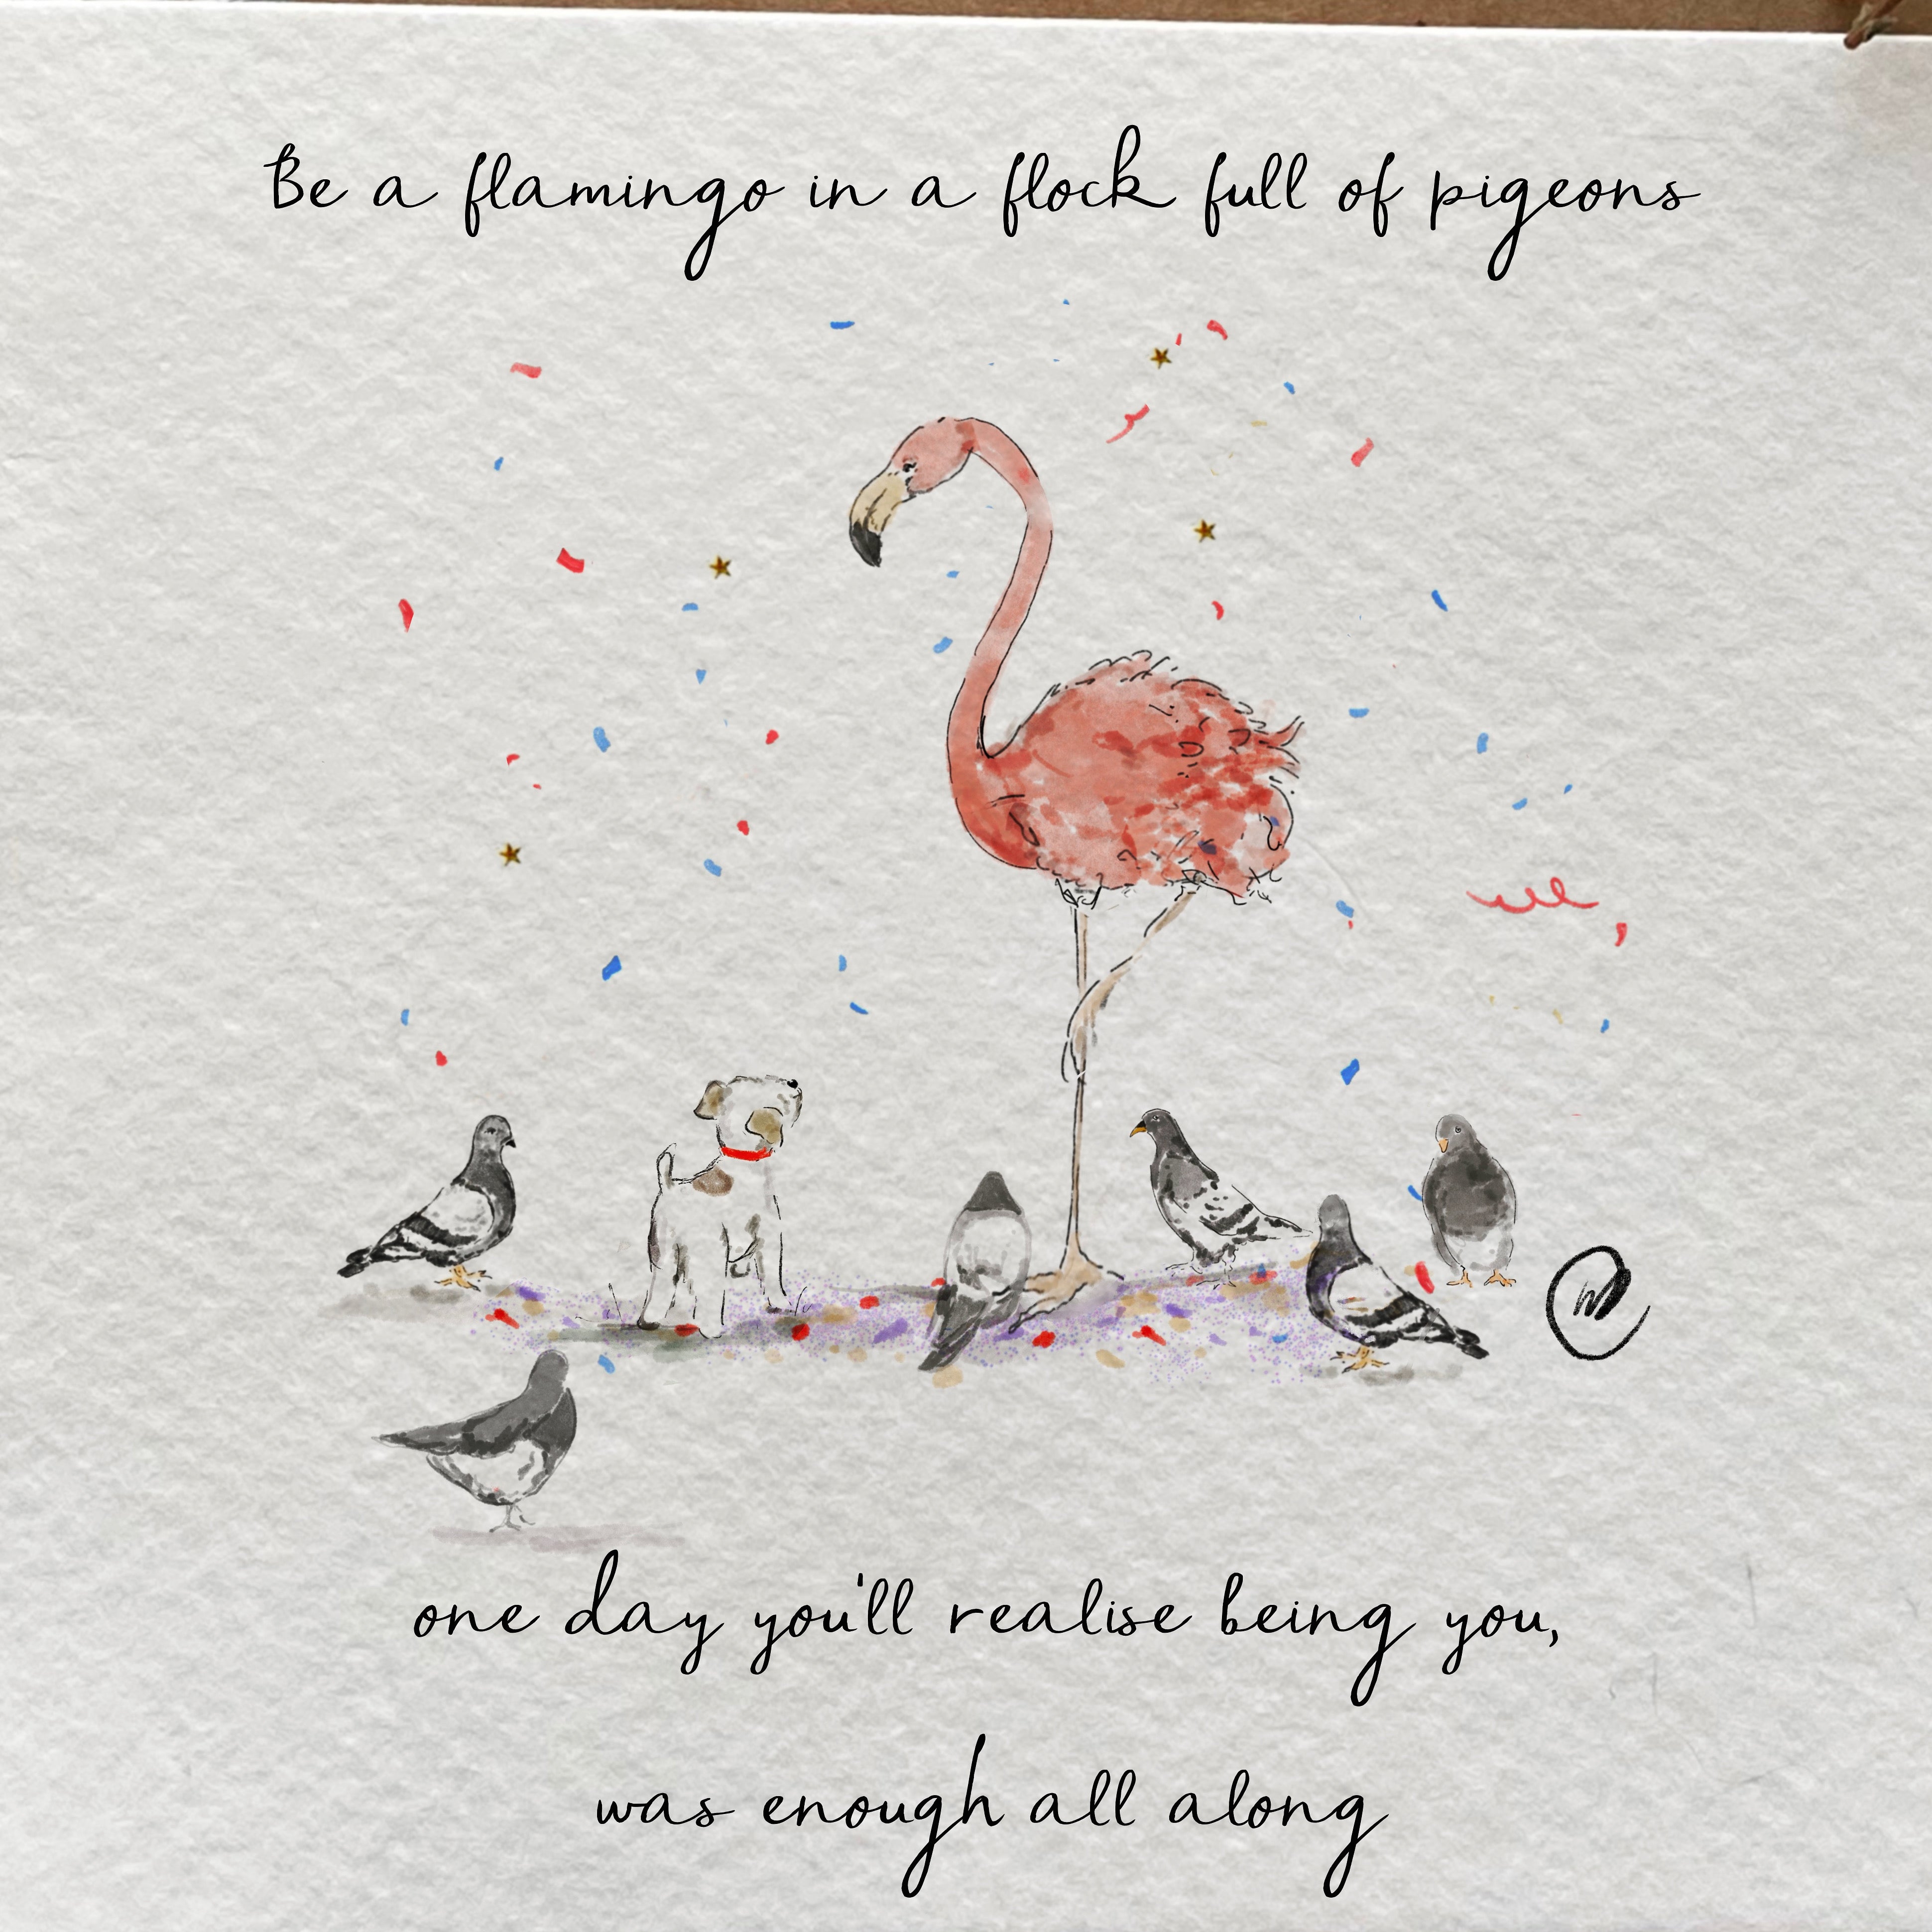 Be a flamingo in a flock full of pigeons
one day you'll realise being you,
was enough all along